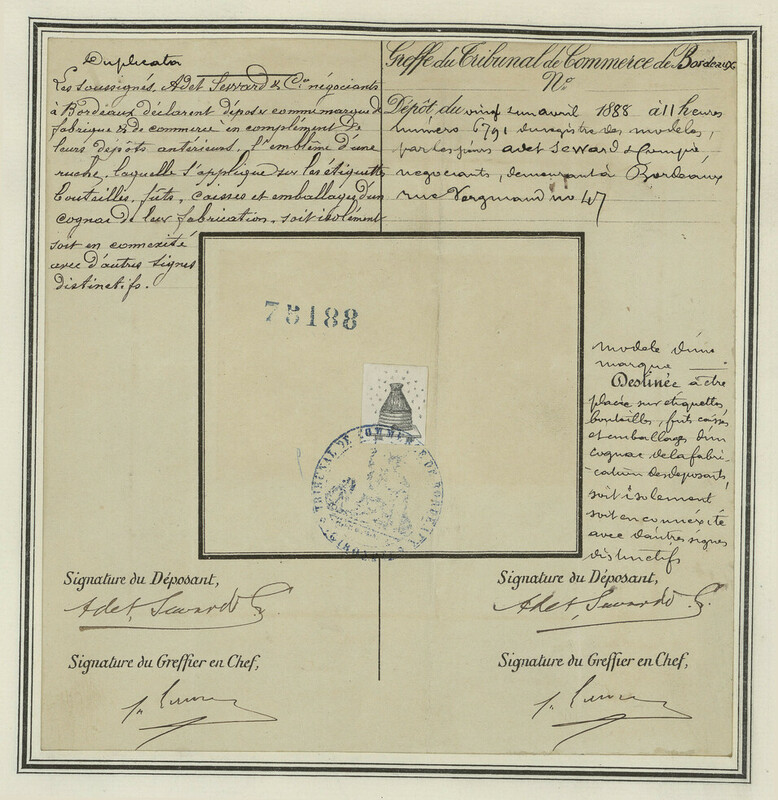 Duplicata
Les soussignés, Adet Seward & Cie négociants
à Bordeaux déclarent déposer comme marque de
fabrique & de commerce en complément de
leurs dépôts antérieurs, l'emblème d'une
ruche, laquelle s'applique sur les étiquettes
bouteilles, fûts, caisses et emballages d'un
cognac de leur fabrication, soit isolément
soit en connexité
avec d'autres signes
distinctifs.
Greffe du Tribunal de Commerce de Bordeaux
No
Dépôt du vingt un avril 1888 à 11 heures
numéro 6791 du registre des modèles,
par les sieurs Adet Seward & Compie
negociants, demeurant à Bordeaux
rue no 47
75188
TRIBUNAL DE COMMERCE DE BORDEAUX
GIRONDE
modele d'une
marque
Destinée à être
placée sur étiquettes
bouteilles, futs caisses
et emballages d'un
cognac de la fabri-
cation des deposants,
soit isolement
soit en connexité
avec d'autres signes
distinctifs
Signature du Déposant,
Adet, Seward & C.
Signature du Déposant,
Adet, Seward & C.
Signature du Greffier en Chef,
Signature du Greffier en Chef,